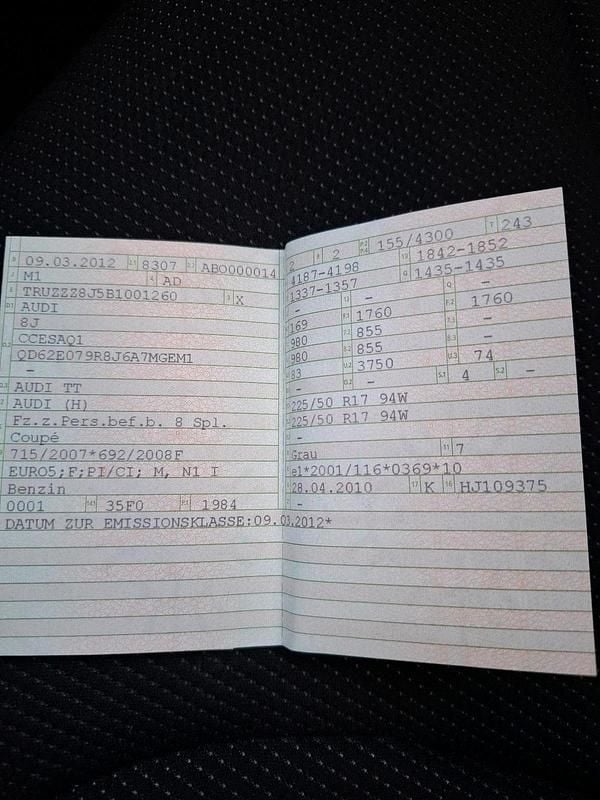 09.03.2012 8307 ABO000014
M1 AD
TRUZZZ8J5B1001260 3 X
AUDI
8J
CCESAQ1
QD62E079R8J6A7MGEM1
–
AUDI TT
AUDI (H)
Fz.z.Pers.bef.b. 8 Spl.
Coupé
715/2007*692/2008F
EURO5;F;PI/CI; M, N1 I
Benzin
0001 35F0 1984
DATUM ZUR EMISSIONSKLASSE:09.03.2012*
2 2 155/4300 T 243
4187-4198 1842-1852
1337-1357 1435-1435
– – –
169 1760 1760
980 855 –
980 855 –
83 3750 74
– – 4 –
225/50 R17 94W
225/50 R17 94W
–
Grau 7
e1*2001/116*0369*10
28.04.2010 17 K 16 HJ109375
–